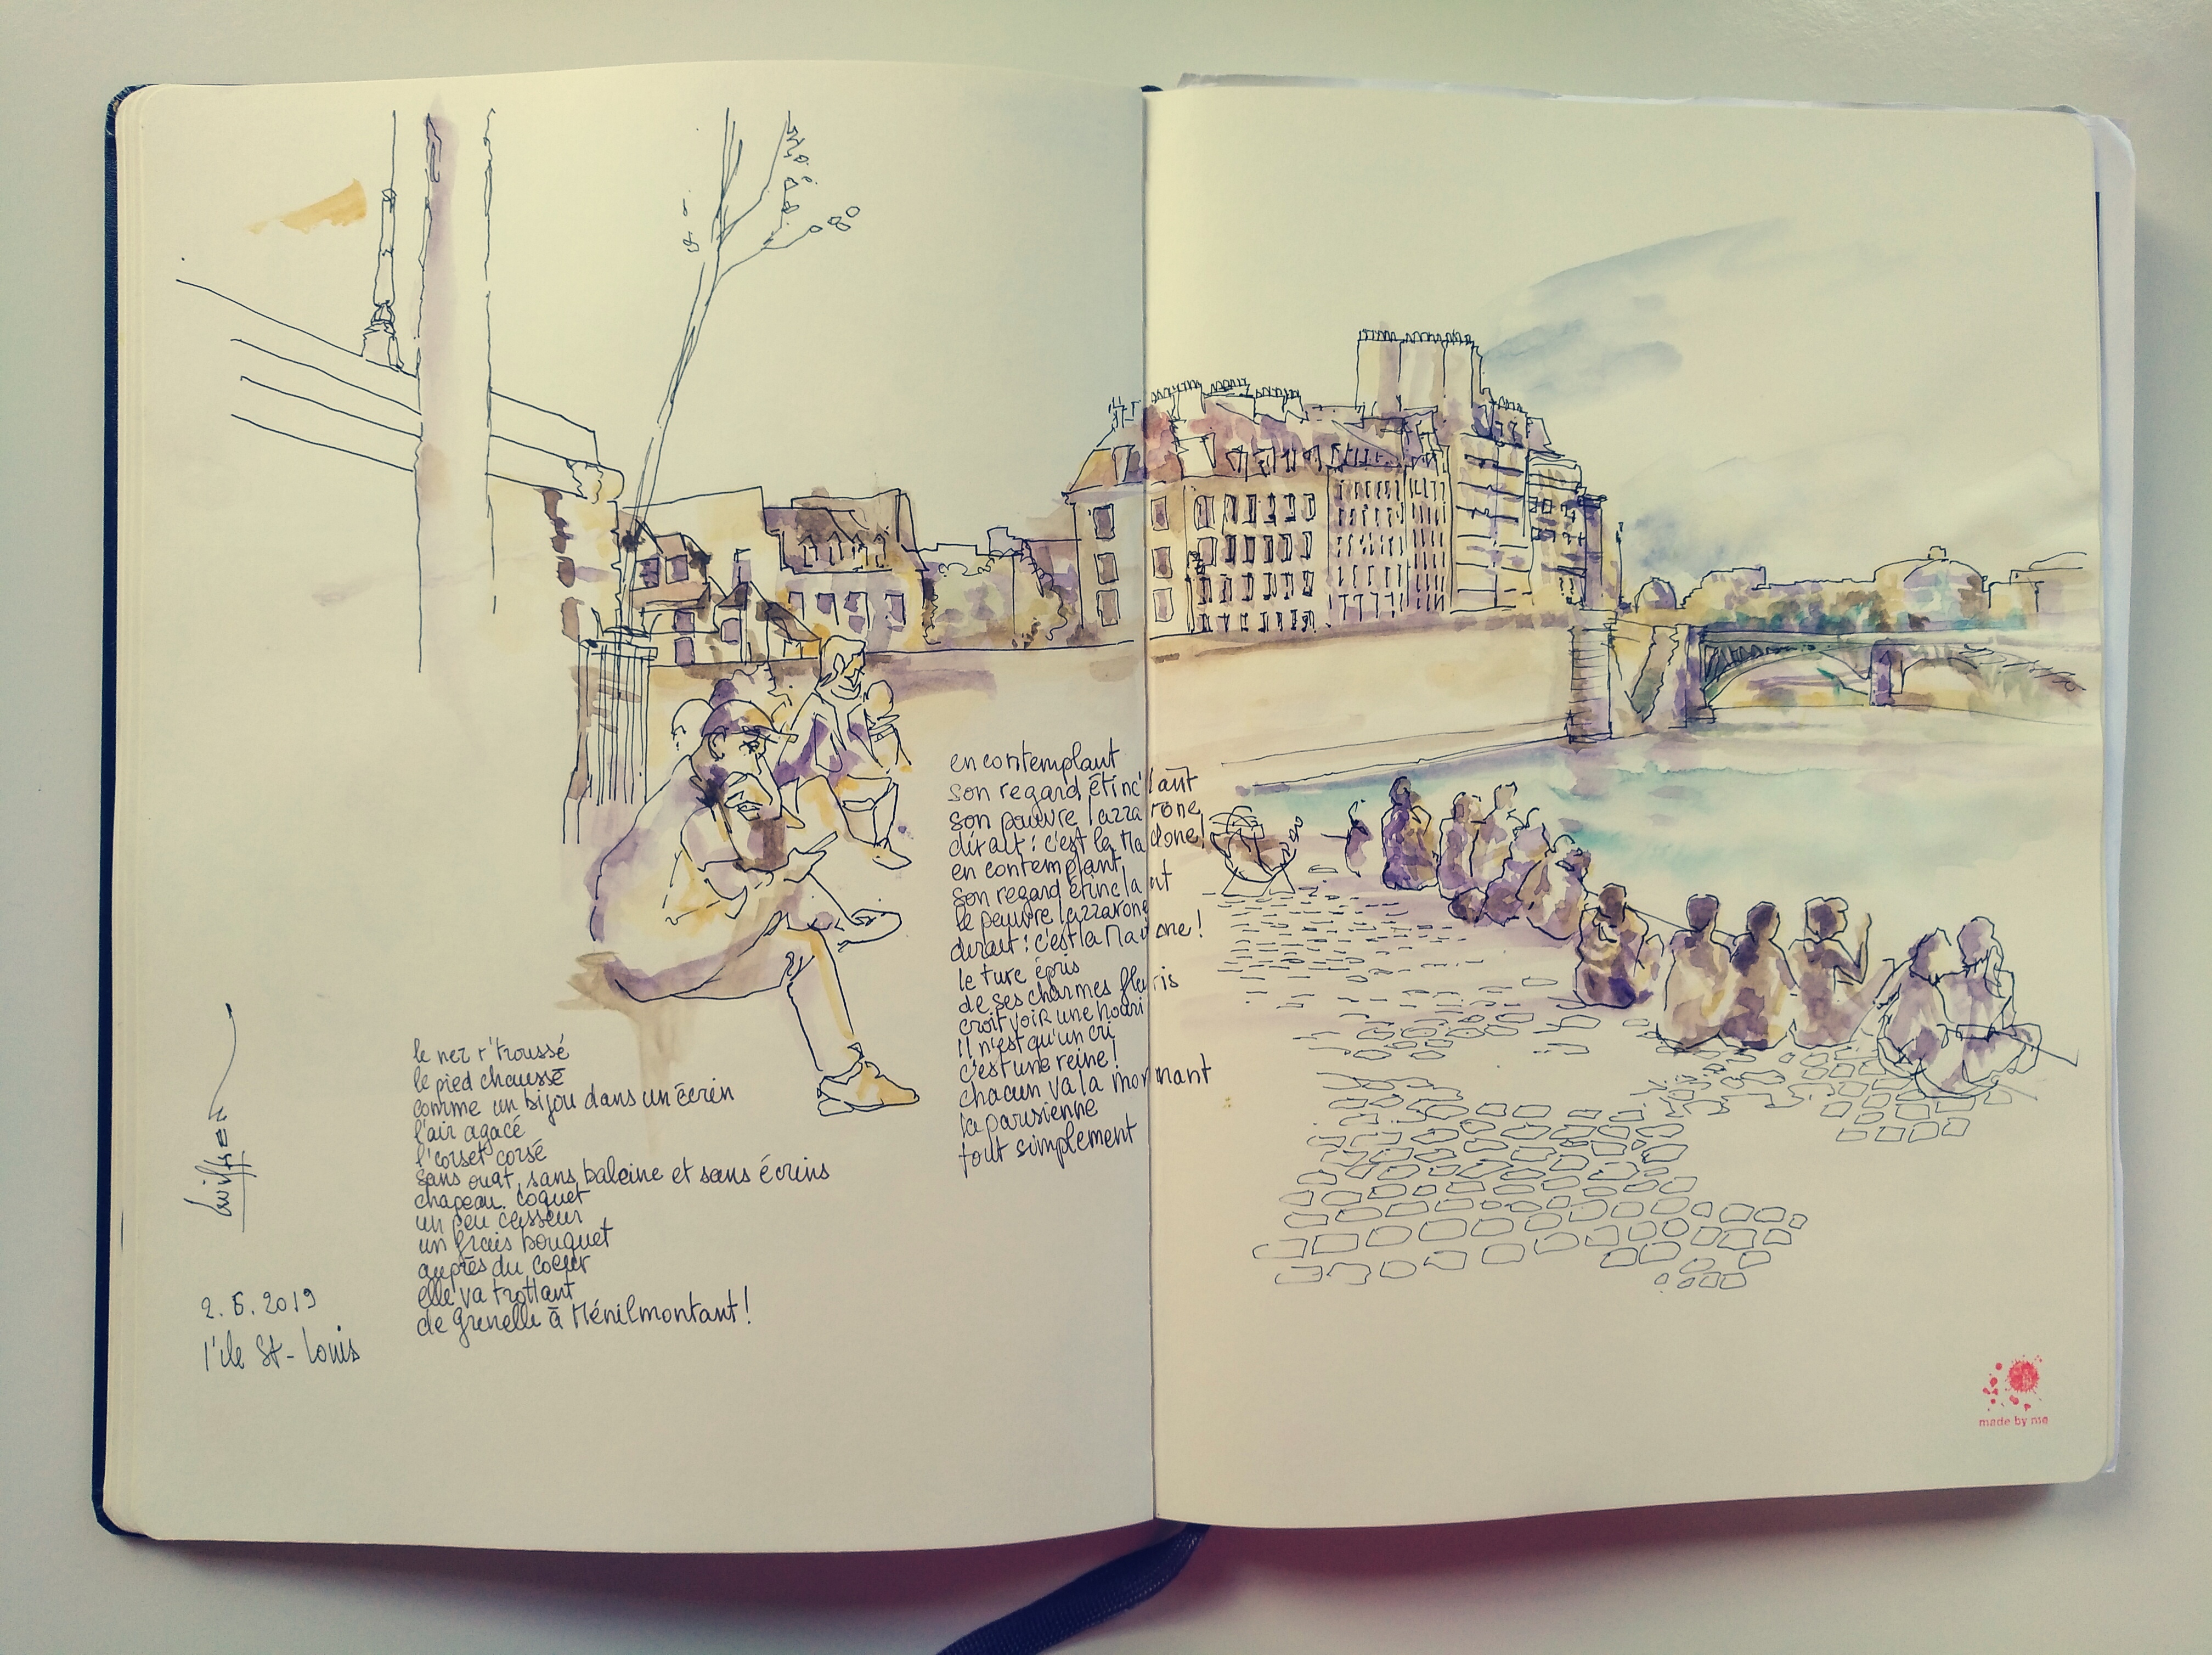 le nez r'troussé
le pied chaussé
comme un bijou dans un écrin
l'air agacé
l'corset corsé
sans ouat, sans baleine et sans écrins
chapeau coquet
un peu casseur
un frais bouquet
auprès du coeur
elle va trottant
de grenelle à Ménilmontant!
en contemplant
son regard étinc'lant
son pauvre lazzarone
dirait: c'est la Madone!
en contemplant
son regard étinclant
le pauvre lazzarone
dirait: c'est la Madone!
le turc épris
de ses charmes fleuris
croit voir une houri
il n'est qu'un cri
c'est une reine!
chacun va la nommant
la parisienne
tout simplement
2.6.2019
l'île St-Louis
made by me